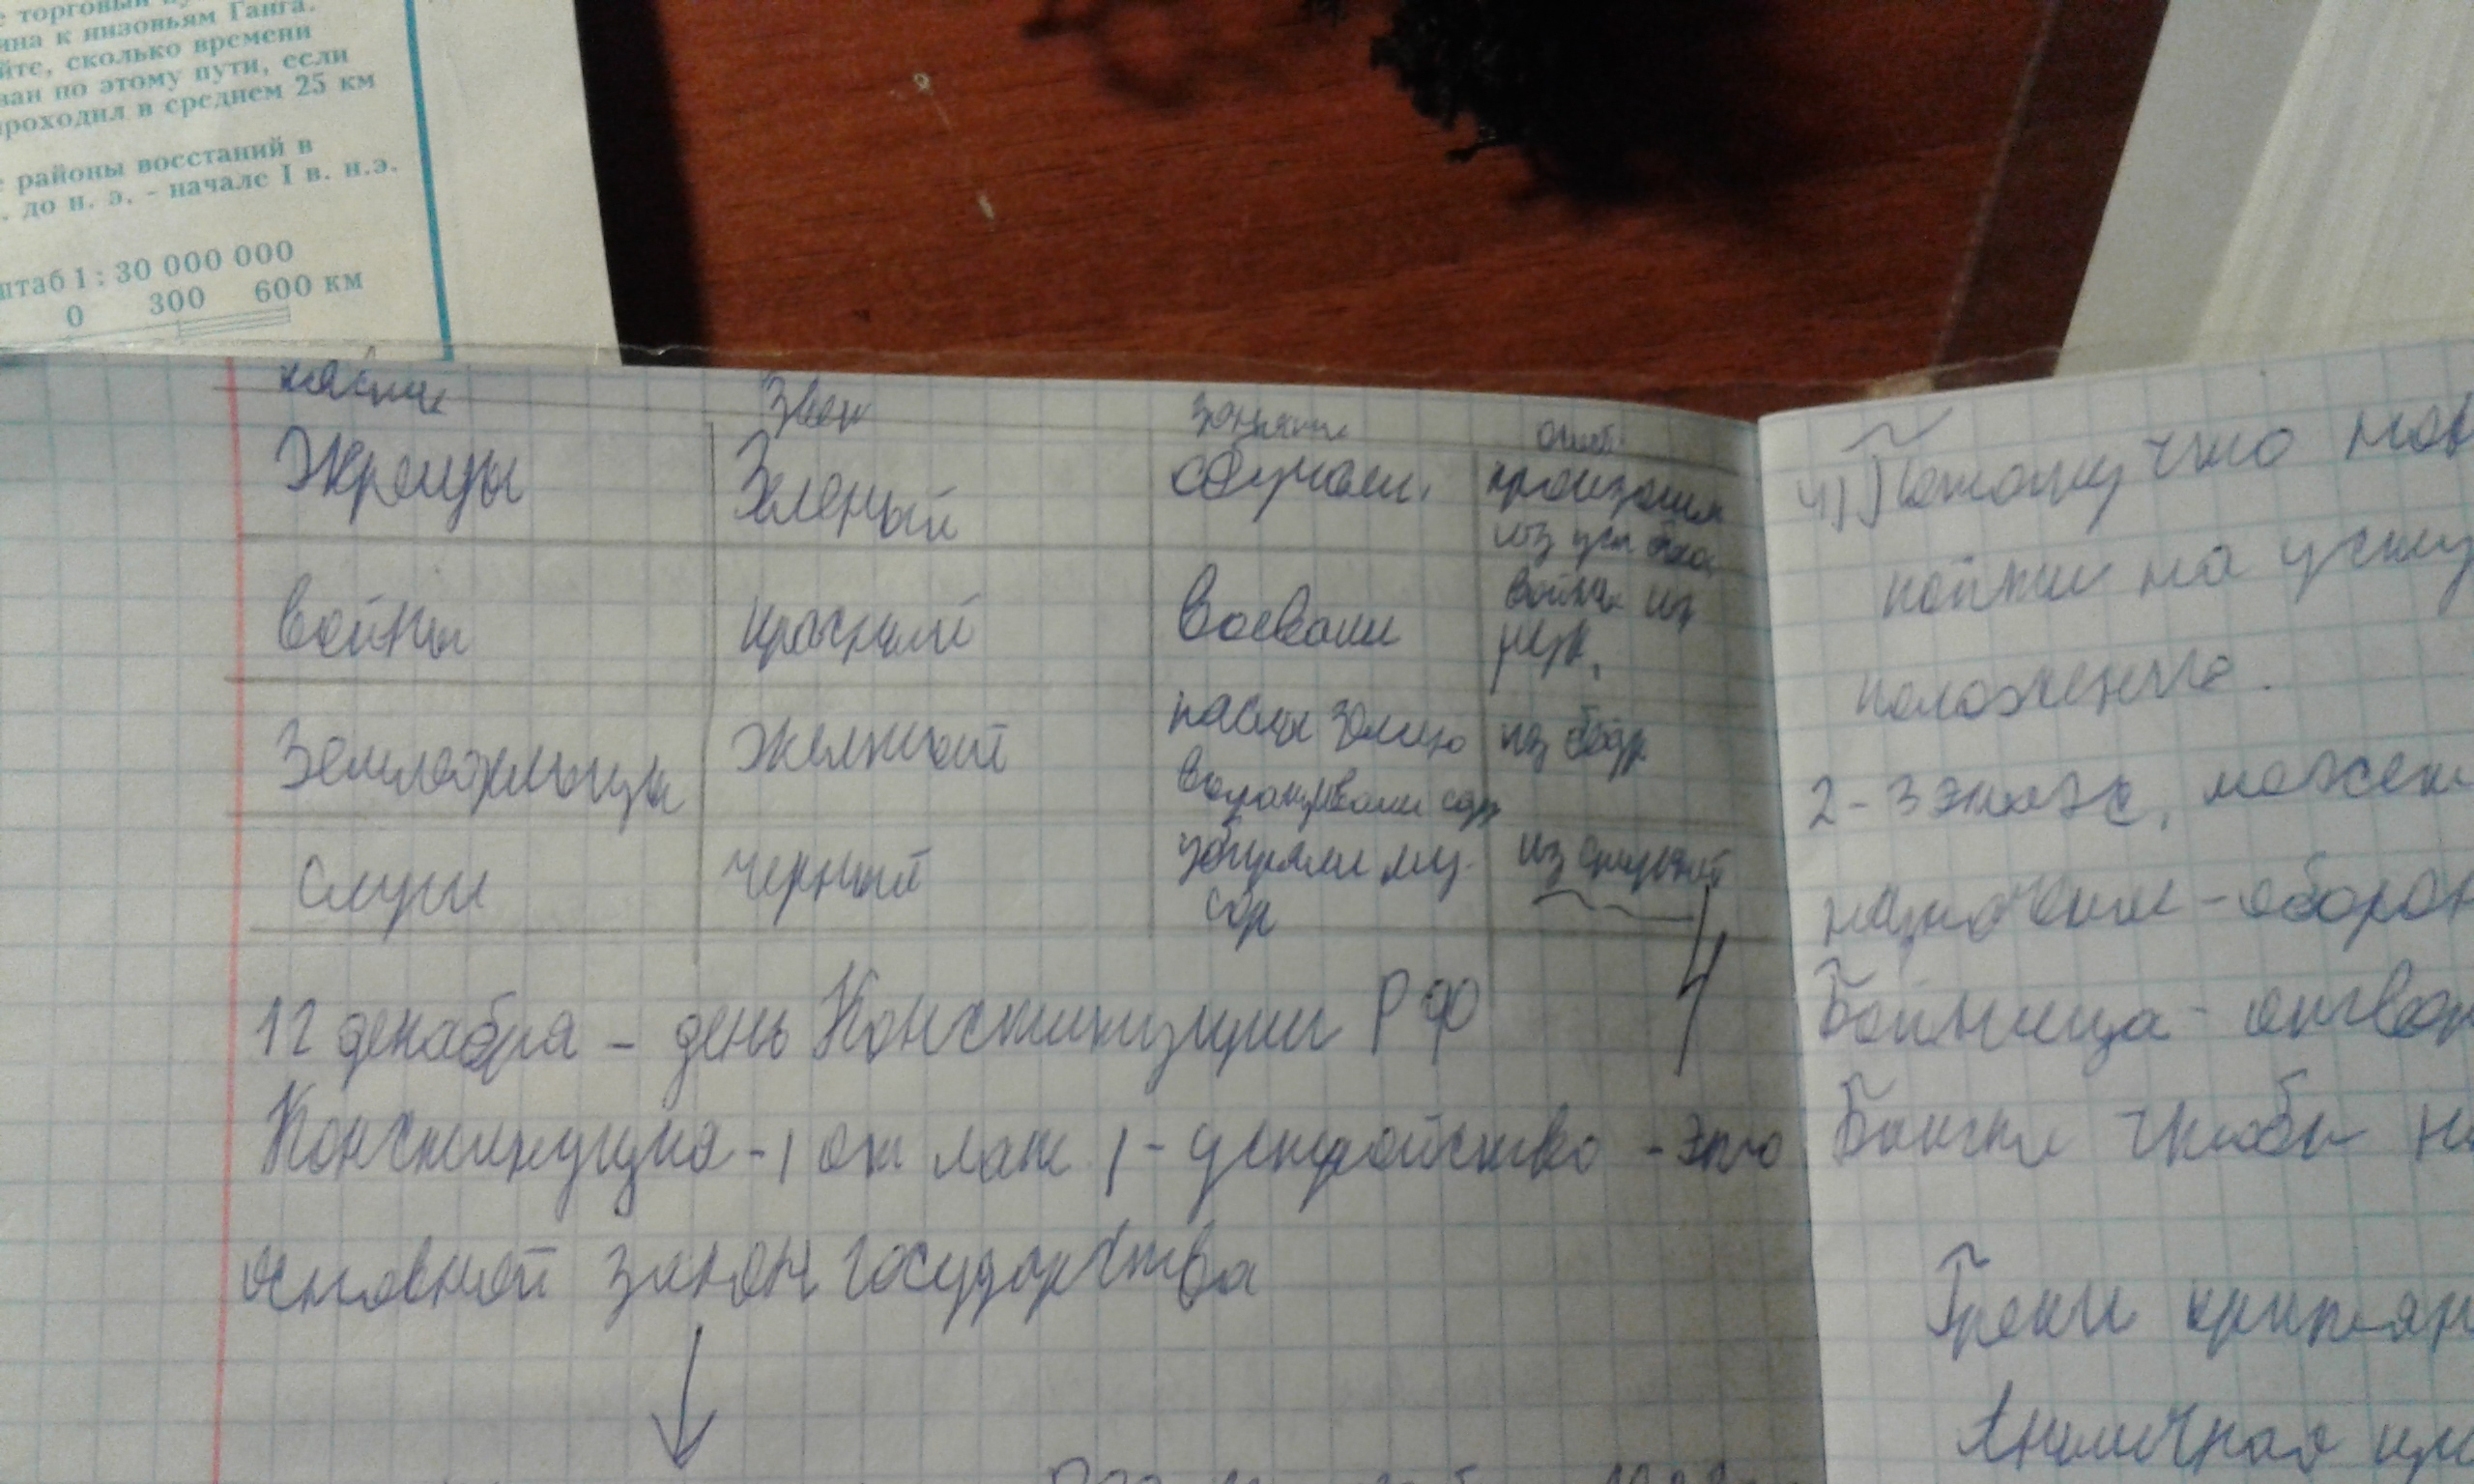 е торговый
ина к низовьям Ганга.
йте, сколько времени
ван по этому пути, если
проходил в среднем 25 км
е районы восстаний в
. до н. э. - начале I в. н.э.
штаб 1 : 30 000 000
0 300 600 км
касты
занятие
Жрецы
Зеленый
обучали.
войны
красный
Воевали
войны из
рук.
Земледельцы
желтый
пасли землю
из бедр
Слуги
черный
убирали му-
сор
из ступней
4
12 декабря - день Конституции РФ
Конституция - ( от лат ) - устройство - это
основной закон государства
4) Потому что
пойти на
положение.
2-3 этажа, может
назначение - оборон
Бойница - отвер
Башни чтобы
Греки
Античная